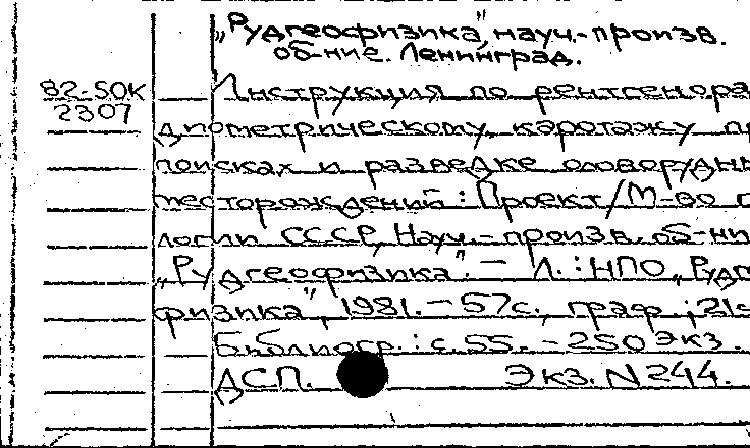 „Рудгеофизика", науч.-произв.
об-ние. Ленинград.
82-SOK
2307
Инструкция по рентгенора
диометрическому каротажу п
поисках и разведке оловорудны
месторождений : Проект/М-во г
логии СССР, Науч.-произв. об-ни
„Рудгеофизика". — Л. : НПО „Рудг
физика", 1981. — 57с., граф. ; 21
Библиогр. : с. 55. - 250 экз.
ДСП. Экз. N 244.